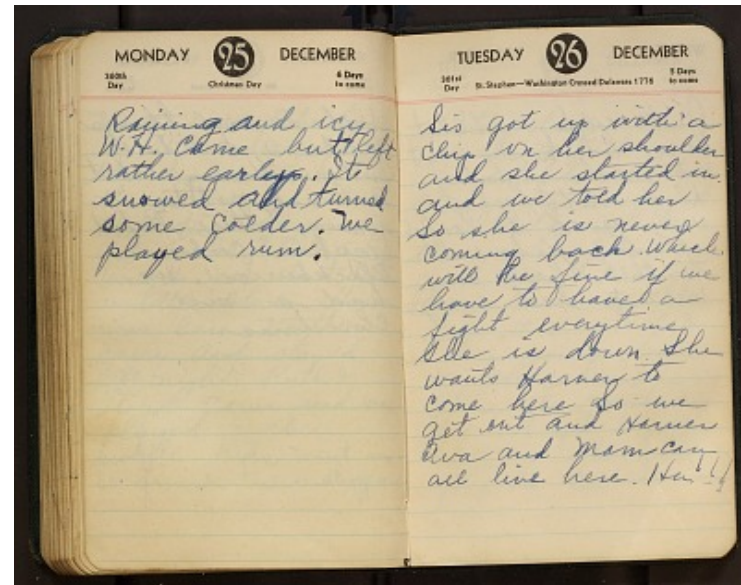 MONDAY 25 DECEMBER
360th Day
Christmas Day
6 Days to come
Raining and icy
W.H. came but left
rather early. It
snowed and turned
some colder. We
played rum.
TUESDAY 26 DECEMBER
361st Day
St. Stephen—Washington Crossed Delaware 1776
5 Days to come
Sis got up with a
chip on her shoulder
and she started in
and we told her
so she is never
coming back. Which
will be fine if we
have to have a
fight everytime
she is down. She
wants Harner to
come here so we
get out and Harner
Eva and Mom can
all live here.